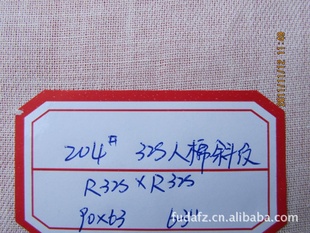 204# 32S人棉斜纹
R32S×R32S
90×63 63"
2011/11/12 11:40
fudafz.cn.alibaba.com